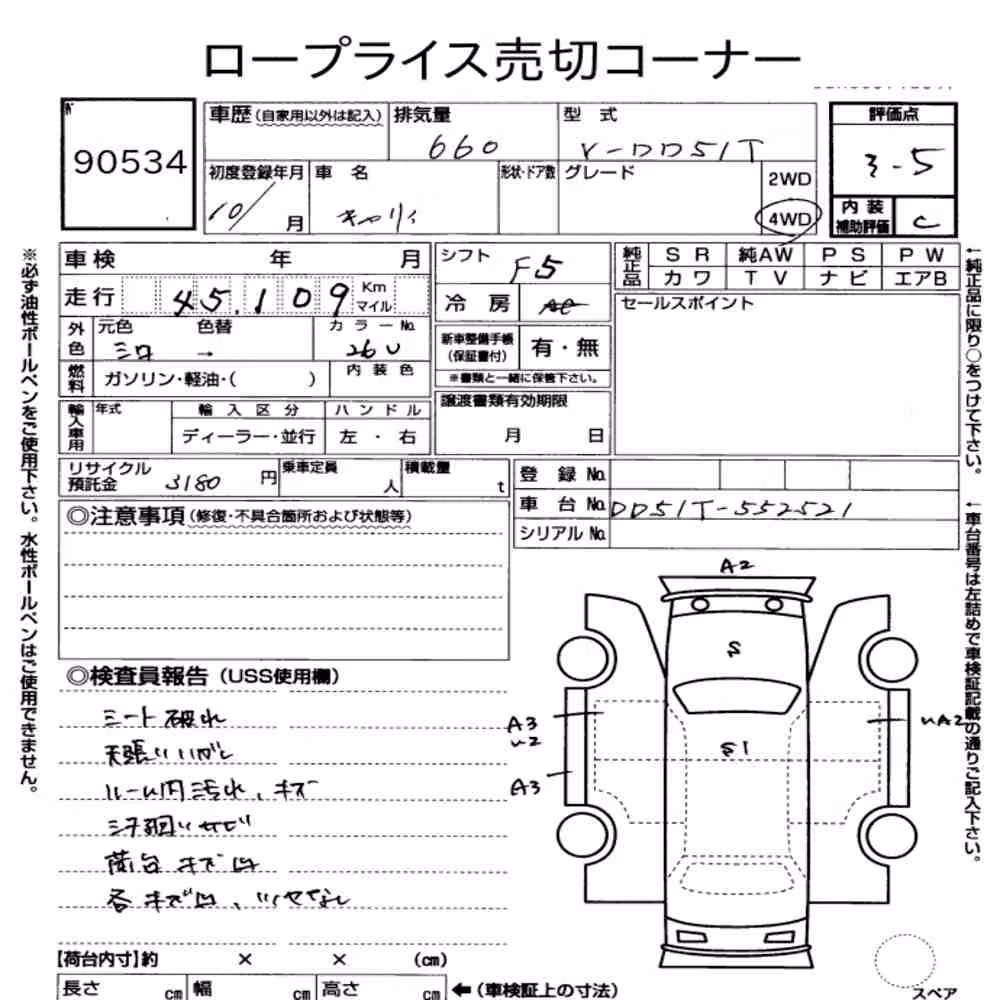 ロープライス売切コーナー
90534
車歴 (自家用以外は記入) 排気量 型 式 評価点
660 V-DD51T 3.5
初度登録年月 車 名 形状・ドア数 グレード 2WD
10/ 月 キャリィ 4WD 内装補助評価 C
車検 年 月 シフト F5 純正品 SR 純AW PS PW
走行 45,109 Km マイル 冷 房 AC カワ TV ナビ エアB
外色 元色 色替 カラーNo. 新車整備手帳 (保証書付) 有・無 セールスポイント
シロ → 26U ※書類と一緒に保管下さい。
燃料 ガソリン・軽油・( ) 内装色
輸入車用 年式 輸入区分 ハンドル 譲渡書類有効期限
ディーラー・並行 左 ・ 右 月 日
リサイクル預託金 3180 円 乗車定員 人 積載量 t 登 録 No.
車 台 No. DD51T-552521
シリアル No.
◎注意事項 (修復・不具合箇所および状態等)
◎検査員報告 (USS使用欄)
シート破れ
天張り
ルーム内汚れ、キズ
下廻りサビ
荷台キズ凹
各キズ凹、
A2
S
S1
A3
U2
A3
UA2
【荷台内寸】約 × × (cm)
長さ cm 幅 cm 高さ cm ←(車検証上の寸法)
スペア
※必ず油性ボールペンをご使用下さい。水性ボールペンはご使用できません。
←純正品に限り○をつけて下さい。
←車台番号は左詰めで車検証記載の通りご記入下さい。